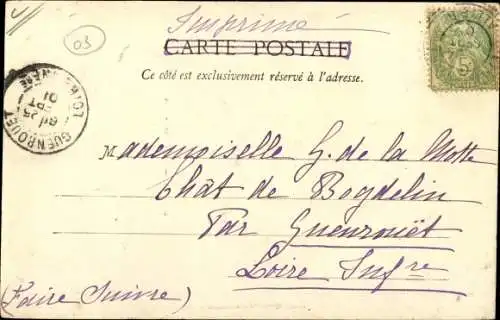 Imprimé
03
CARTE POSTALE
Ce côté est exclusivement réservé à l'adresse.
GUENROUET
25
SEPT
01
LOIRE INFRE
5c
Mademoiselle G. de la Motte
Chât de Bogdelin
Par Guenrouët
Loire Infre
(Faire Suivre)